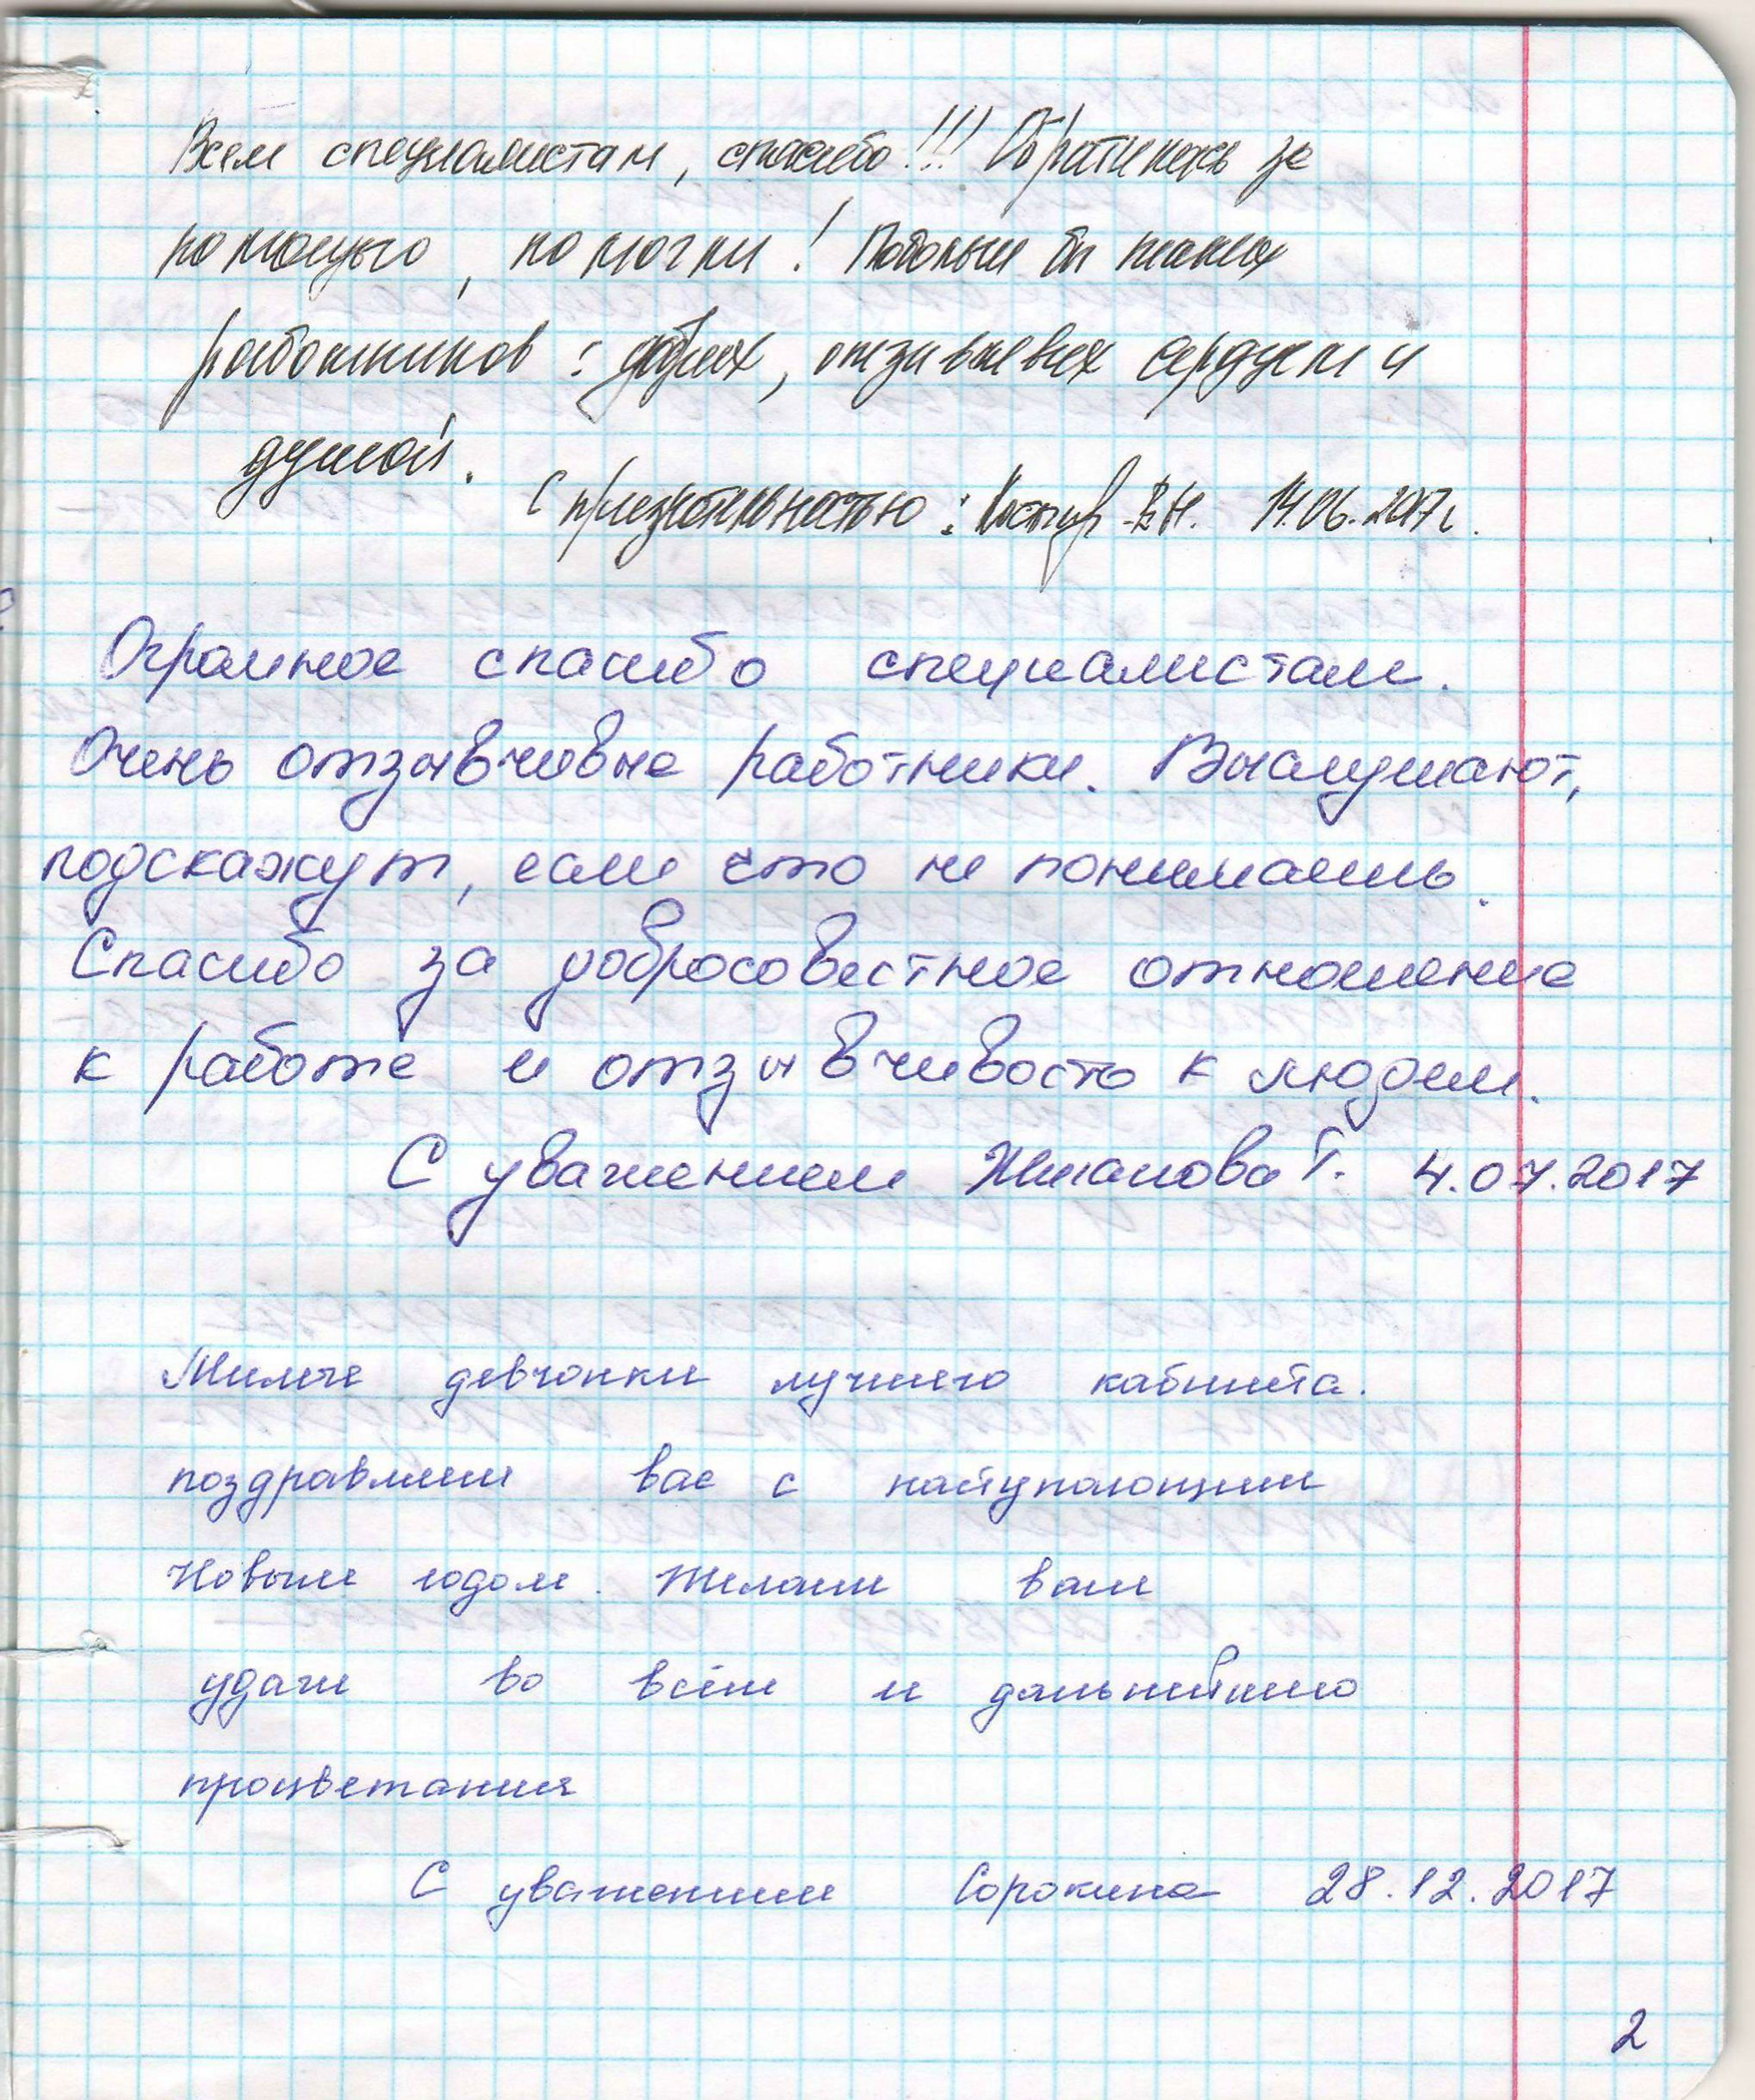 Всем специалистам, спасибо!!! Обратилась за
помощью, помогли! Побольше бы таких
работников: добрых, отзывчивых сердцем и
душой.
С признательностью: В.Н. 14.06.2017г.
Огромное спасибо специалистам.
Очень отзывчивые работники. Выслушают,
подскажут, если что не понимаешь.
Спасибо за добросовестное отношение
к работе и отзывчивость к людям.
С уважением Жманова Г. 4.07.2017
Милые девчонки лучшего кабинета.
поздравляем вас с наступающим
Новым годом. Желаем вам
удачи во всём и дальнейшего
процветания
С уважением Сорокина 28.12.2017
2